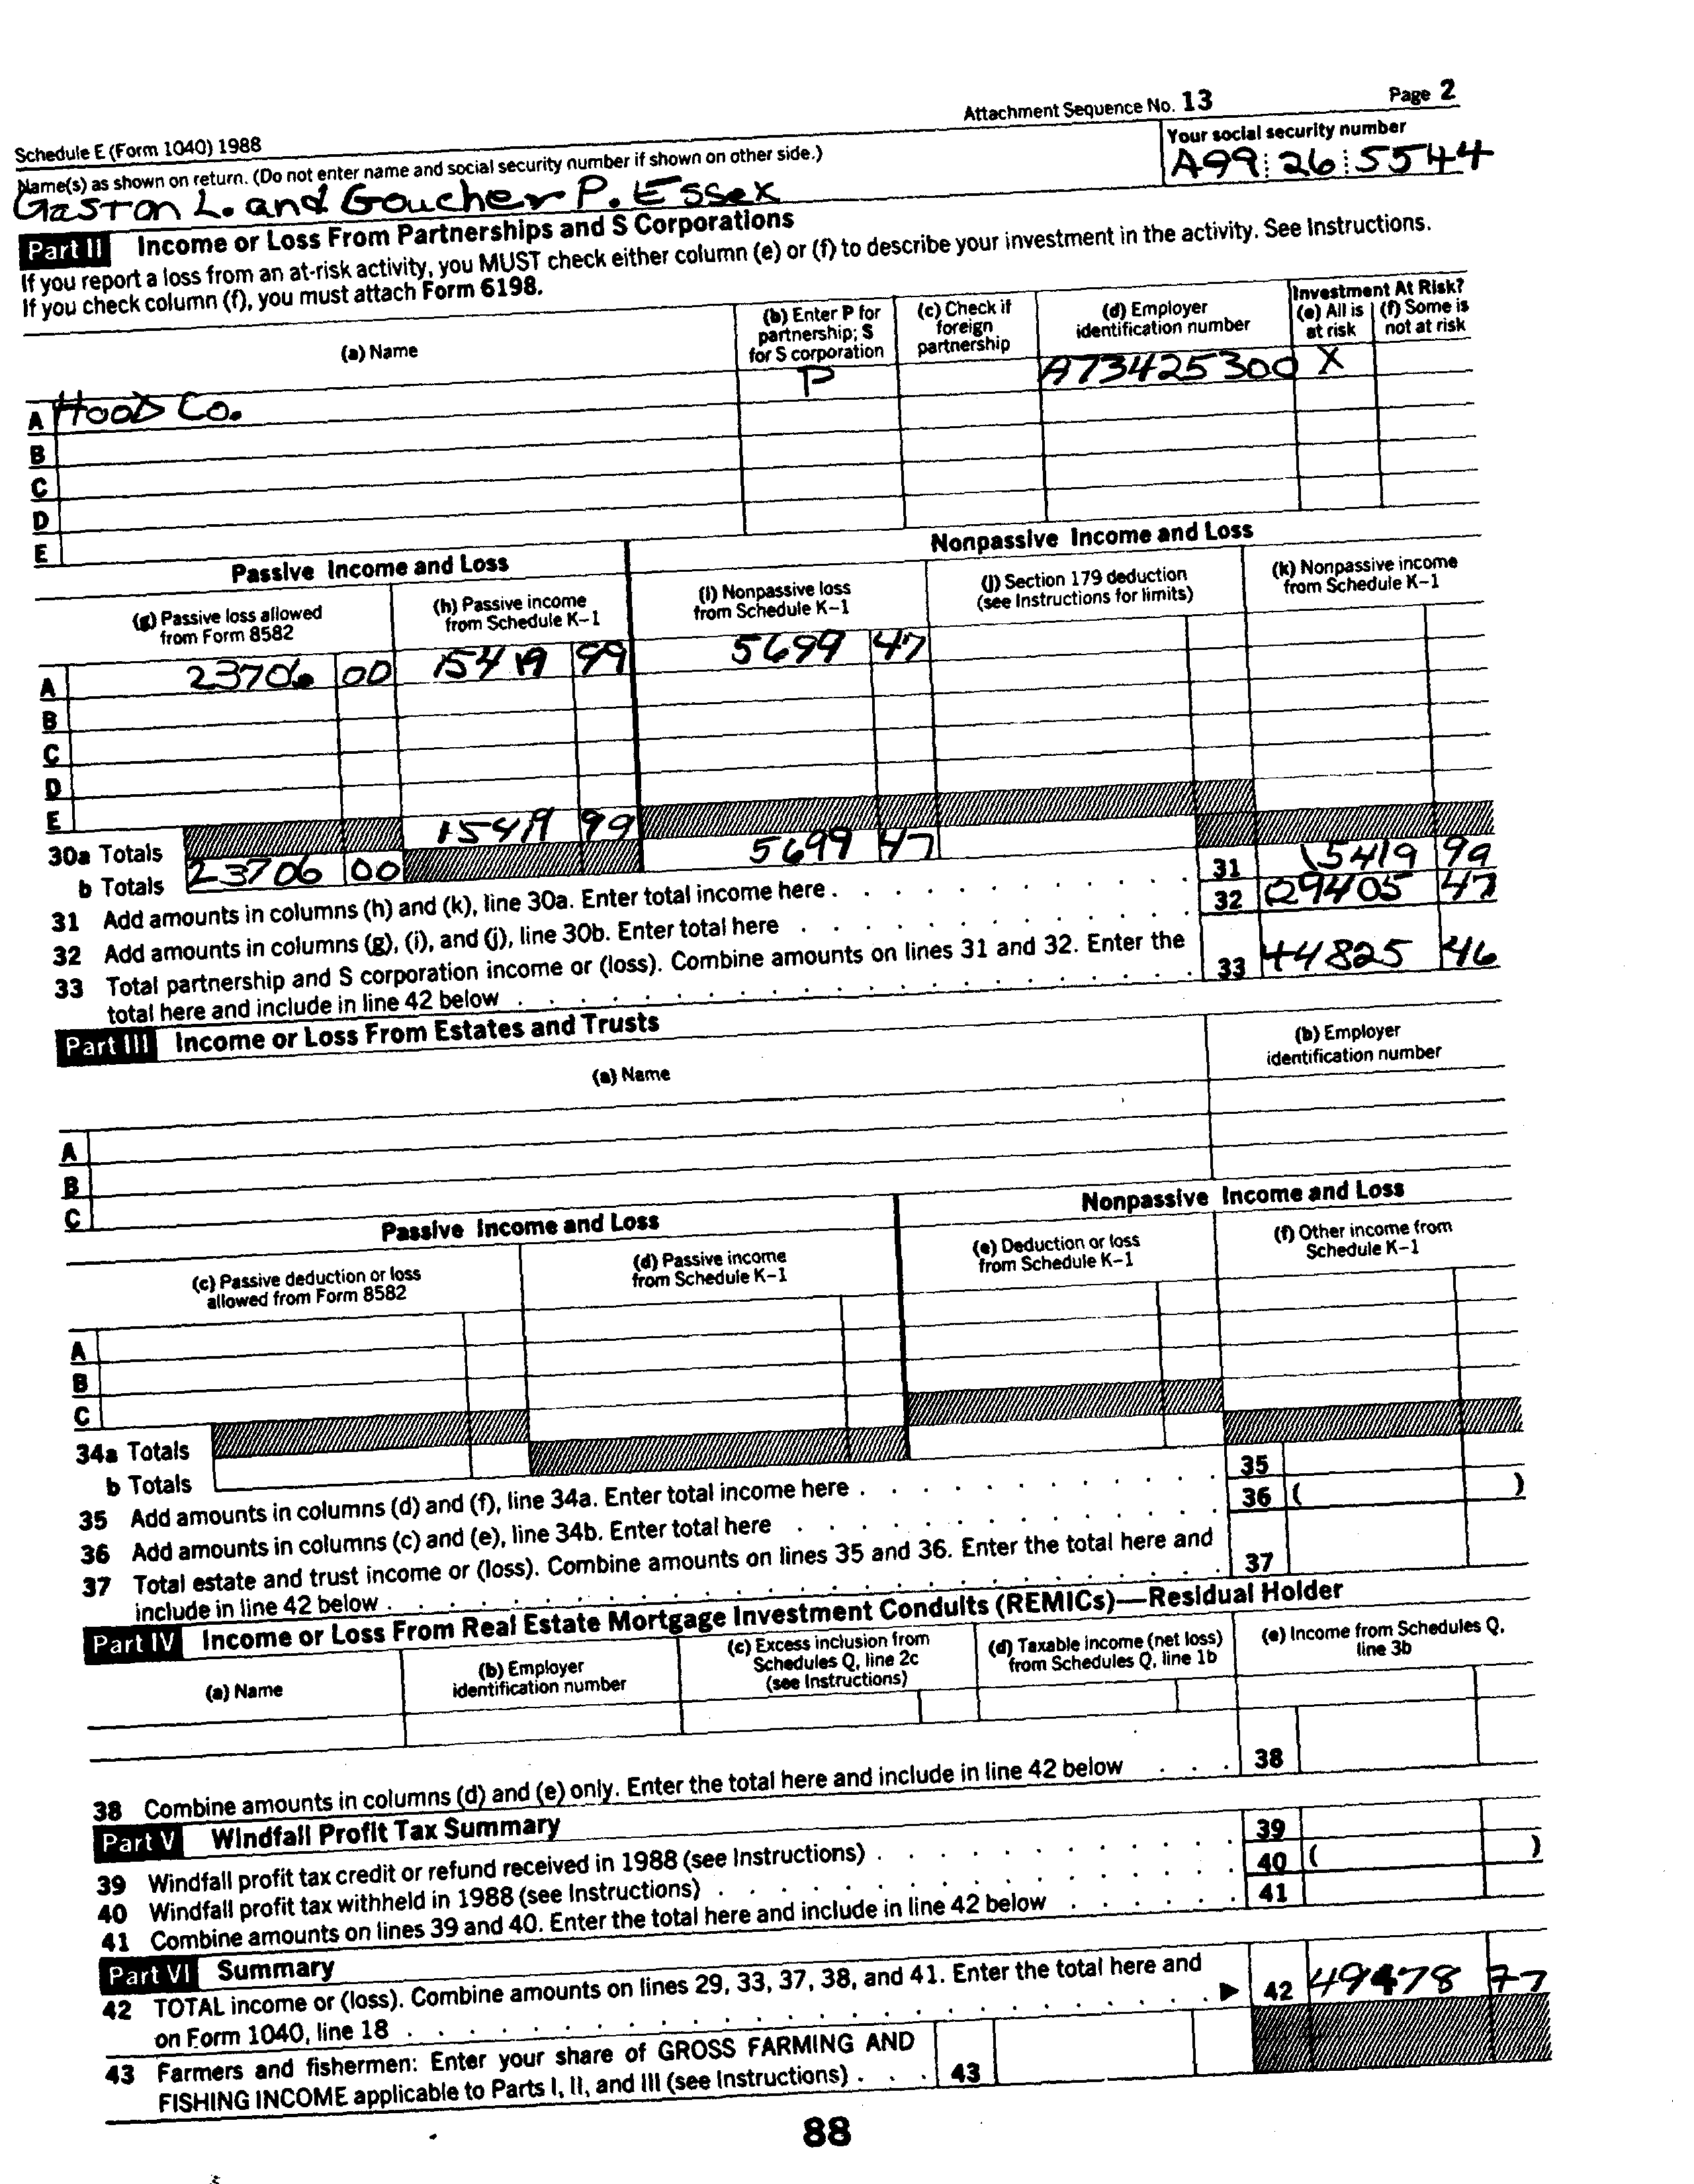 Attachment Sequence No. 13 Page 2
Schedule E (Form 1040) 1988
Name(s) as shown on return. (Do not enter name and social security number if shown on other side.)
Your social security number
Gaston L. and Goucher P. Essex
A99 26 5544
Part II Income or Loss From Partnerships and S Corporations
If you report a loss from an at-risk activity, you MUST check either column (e) or (f) to describe your investment in the activity. See Instructions.
If you check column (f), you must attach Form 6198.
(a) Name
(b) Enter P for partnership; S for S corporation
(c) Check if foreign partnership
(d) Employer identification number
Investment At Risk?
(e) All is at risk
(f) Some is not at risk
A Hood Co. P A73425300 X
B
C
D
E
Passive Income and Loss
Nonpassive Income and Loss
(g) Passive loss allowed from Form 8582
(h) Passive income from Schedule K-1
(i) Nonpassive loss from Schedule K-1
(j) Section 179 deduction (see Instructions for limits)
(k) Nonpassive income from Schedule K-1
A 23706 00 15419 99 5699 47
B
C
D
E
30a Totals 15419 99
b Totals 23706 00 5699 47
31 Add amounts in columns (h) and (k), line 30a. Enter total income here 31 15419 99
32 Add amounts in columns (g), (i), and (j), line 30b. Enter total here 32 (29405 47
33 Total partnership and S corporation income or (loss). Combine amounts on lines 31 and 32. Enter the
total here and include in line 42 below 33 44825 46
Part III Income or Loss From Estates and Trusts
(a) Name
(b) Employer identification number
A
B
C
Passive Income and Loss
Nonpassive Income and Loss
(c) Passive deduction or loss allowed from Form 8582
(d) Passive income from Schedule K-1
(e) Deduction or loss from Schedule K-1
(f) Other income from Schedule K-1
A
B
C
34a Totals
b Totals
35 Add amounts in columns (d) and (f), line 34a. Enter total income here 35
36 Add amounts in columns (c) and (e), line 34b. Enter total here 36 ( )
37 Total estate and trust income or (loss). Combine amounts on lines 35 and 36. Enter the total here and
include in line 42 below 37
Part IV Income or Loss From Real Estate Mortgage Investment Conduits (REMICs)—Residual Holder
(a) Name
(b) Employer identification number
(c) Excess inclusion from Schedules Q, line 2c (see Instructions)
(d) Taxable income (net loss) from Schedules Q, line 1b
(e) Income from Schedules Q, line 3b
38 Combine amounts in columns (d) and (e) only. Enter the total here and include in line 42 below 38
Part V Windfall Profit Tax Summary
39 Windfall profit tax credit or refund received in 1988 (see Instructions) 39
40 Windfall profit tax withheld in 1988 (see Instructions) 40 ( )
41 Combine amounts on lines 39 and 40. Enter the total here and include in line 42 below 41
Part VI Summary
42 TOTAL income or (loss). Combine amounts on lines 29, 33, 37, 38, and 41. Enter the total here and
on Form 1040, line 18 ▶ 42 49478 77
43 Farmers and fishermen: Enter your share of GROSS FARMING AND
FISHING INCOME applicable to Parts I, II, and III (see Instructions) 43
88